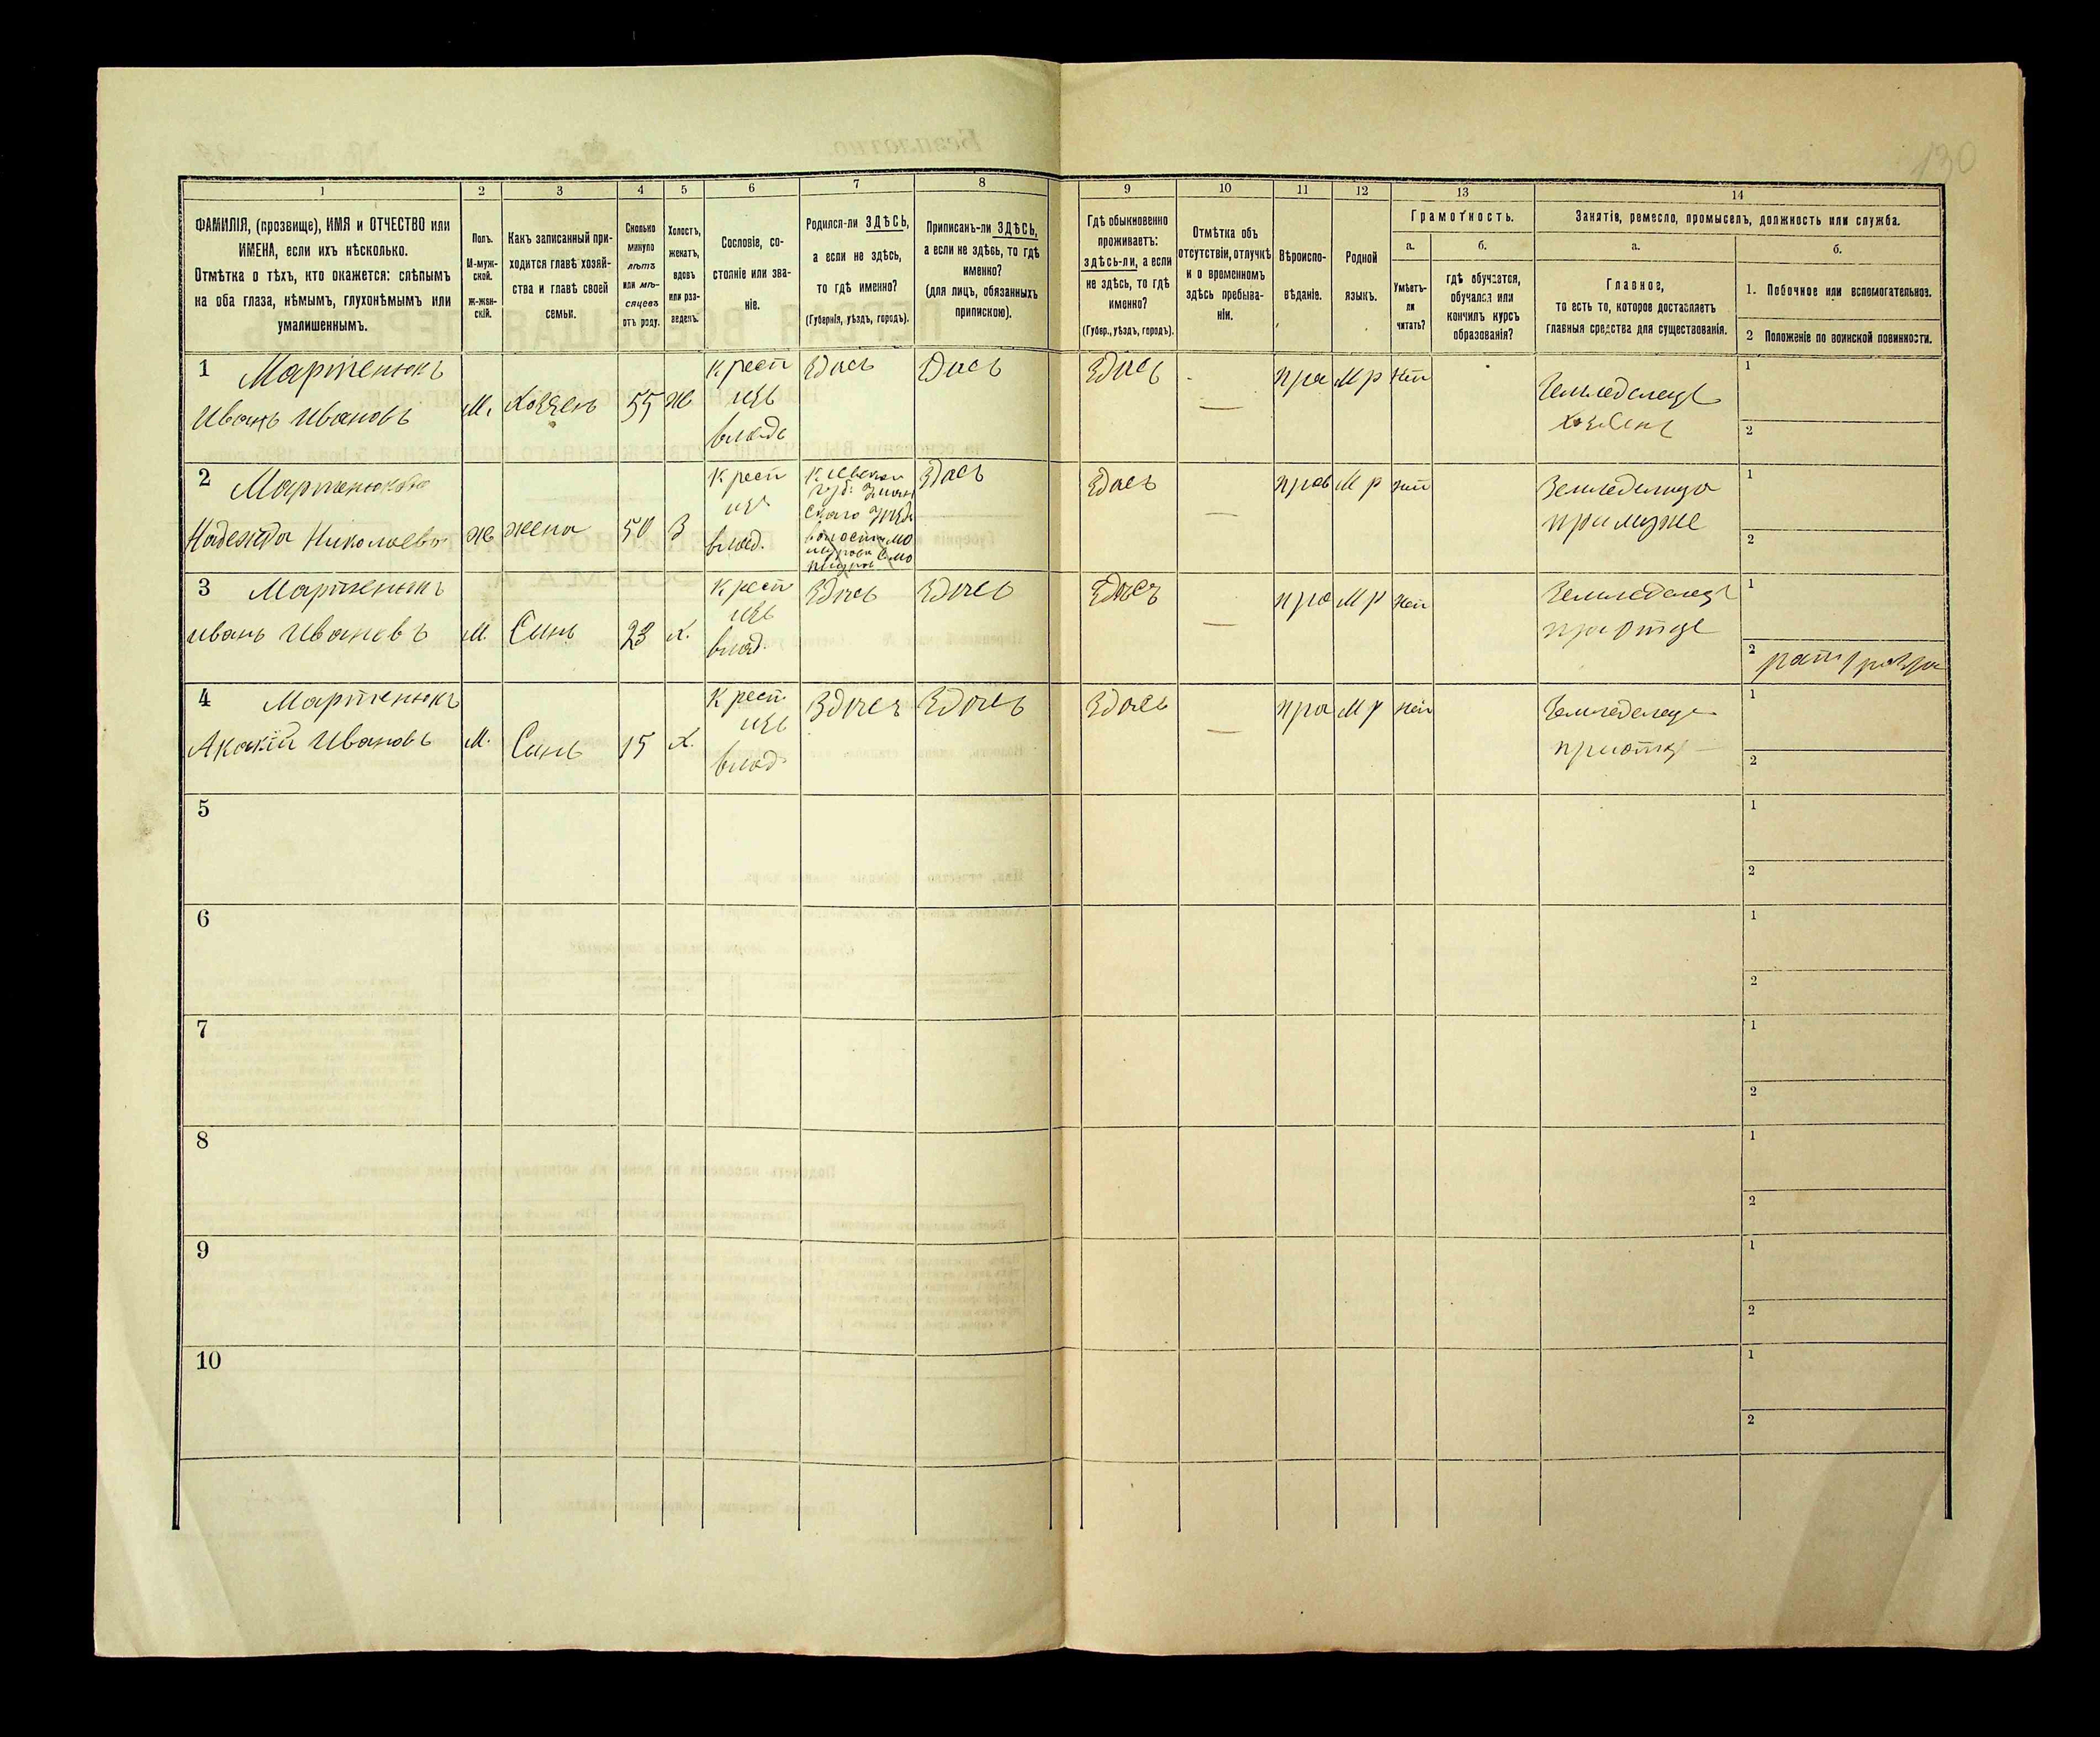 130
1 2 3 4 5 6 7 8 9 10 11 12 13 14
ФАМИЛІЯ, (прозвище), ИМЯ и ОТЧЕСТВО или
ИМЕНА, если ихъ нѣсколько.
Отмѣтка о тѣхъ, кто окажется: слѣпымъ
на оба глаза, нѣмымъ, глухонѣмымъ или
умалишеннымъ.
Полъ.
М-муж-
ской.
ж-жен-
скій.
Какъ записанный при-
ходится главѣ хозяй-
ства и главѣ своей
семьи.
Сколько
минуло
лѣтъ
или мѣ-
сяцевъ
отъ роду.
Холостъ,
женатъ,
вдовъ
или раз-
веденъ.
Сословіе, со-
стояніе или зва-
ніе.
Родился-ли ЗДѢСЬ,
а если не здѣсь,
то гдѣ именно?
(Губернія, уѣздъ, городъ).
Приписанъ-ли ЗДѢСЬ,
а если не здѣсь, то гдѣ
именно?
(для лицъ, обязанныхъ
припискою).
Гдѣ обыкновенно
проживаетъ:
здѣсь-ли, а если
не здѣсь, то гдѣ
именно?
(Губер., уѣздъ, городъ).
Отмѣтка объ
отсутствіи, отлучкѣ
и о временномъ
здѣсь пребыва-
ніи.
Вѣроиспо-
вѣданіе.
Родной
языкъ.
Грамотность.
а.
Умѣетъ-
ли
читать?
б.
гдѣ обучается,
обучался или
кончилъ курсъ
образованія?
Занятіе, ремесло, промыселъ, должность или служба.
а.
Главное,
то есть то, которое доставляетъ
главныя средства для существованія.
б.
1. Побочное или вспомогательное.
2 Положеніе по воинской повинности.
1 Мартенюкъ
Иванъ Ивановъ
М. Хозяенъ 55 Ж
Крест
изъ
влад
Здесь Здесь Здесь — пра М р Нет
Земледелецъ
хозяенъ
1
2
2 Мартенюкова
Надежда Николаева
Ж жена 50 З
Крест
изъ
влад.
Киевской
губ.
Здесь Здесь — прав М р Нет
Земледелица
при муже
1
2
3 Мартенюкъ
Иванъ Ивановъ
М. Синъ 23 Х.
Крест
изъ
влад.
Здесь Здесь Здесь — пра М р Нет
Земледелецъ
при отце
1
2 рат 1 разря
4 Мартенюкъ
Акакій Ивановъ
М. Синъ 15 Х.
Крест
изъ
влад
Здесь Здесь Здесь — пра М р Нет
Земледелец
при отце
1
2
5
1
2
6
1
2
7
1
2
8
1
2
9
1
2
10
1
2